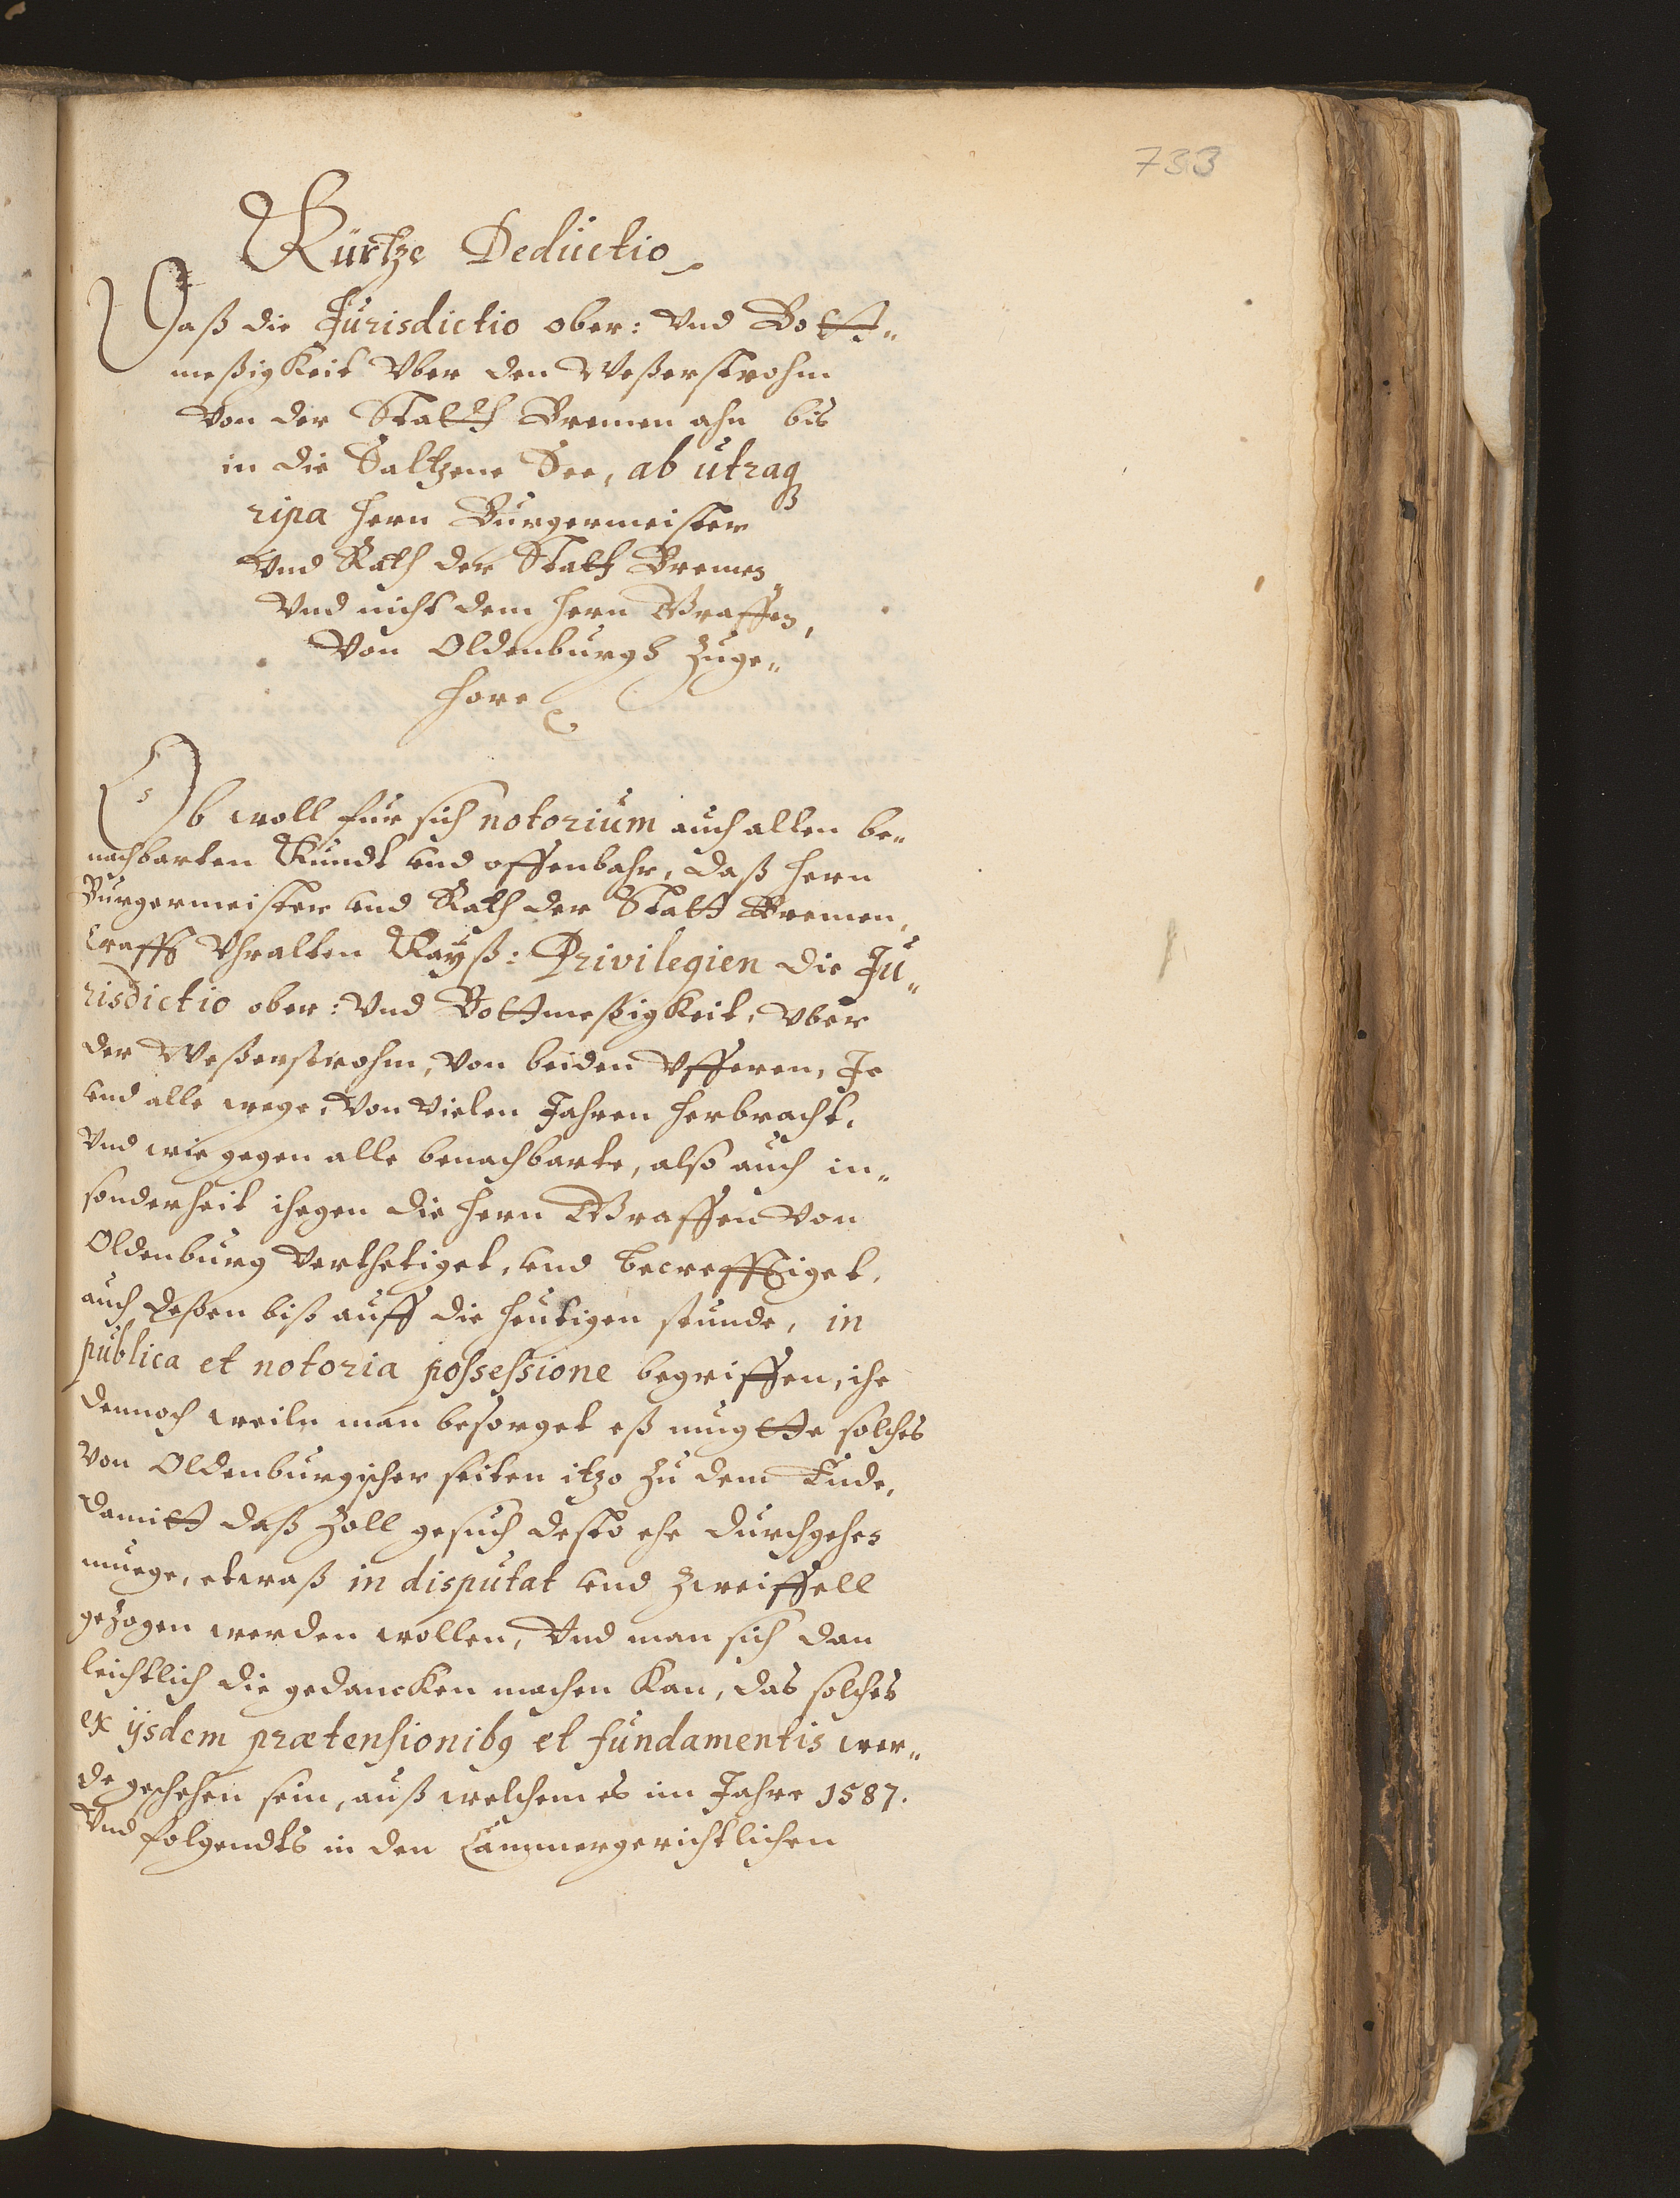 733
Kurtze Deductio
Daß die Jurisdictio ober: Vnd Bott„
meßigkeit Vber den Weßerstrohm
Von der Statth Bremen ahn bis
in die Saltzene See, ab utraq3
ripa Hern Burgermeister
Vnd Rath der Stath Bremen,
Vnd nicht dem Hern Graffen,
Von Oldenburgh Zuge„
hore
Ob woll fur sich notorium auch allen be„
nachbarten Kundt und offenbahr, daß Hern
Burgermeister und Rath der Statt Bremen,
Crafft Vhralten Kayß: Privilegien die Ju„
risdictio ober: Vnd Bottmeßigkeit, Vber
der Weßerstrohm, Von beiden Vfferen, Je
und alle wege, Von Vielen Jahren herbracht,
Vnd wie gegen alle benachbarte, also auch in„
sonderheit ihegen die Hern Graffen Von
Oldenburg Verthetiget, und becrefftiget,
auch deßen biß auff die heutigen stunde, in
publica et notoria possessione begriffen, ihe
dennoch weiln man besorget eß mugtte solches
Von Oldenburgischer seiten itzo Zu dem Ende,
damitt daß Zoll gesuch desto ehe durchgehen
muege, etwaß in disputat und Zweiffell
gezogen werden wollen, Vnd man sich dan
leichtlich die gedancken machen Kan, das solches
ex ijsdem prætensionib9 et fundamentis wer„
de geschehen sein, auß welchem es im Jahre 1587.
Vnd folgendts in den Cammergerichtlichen